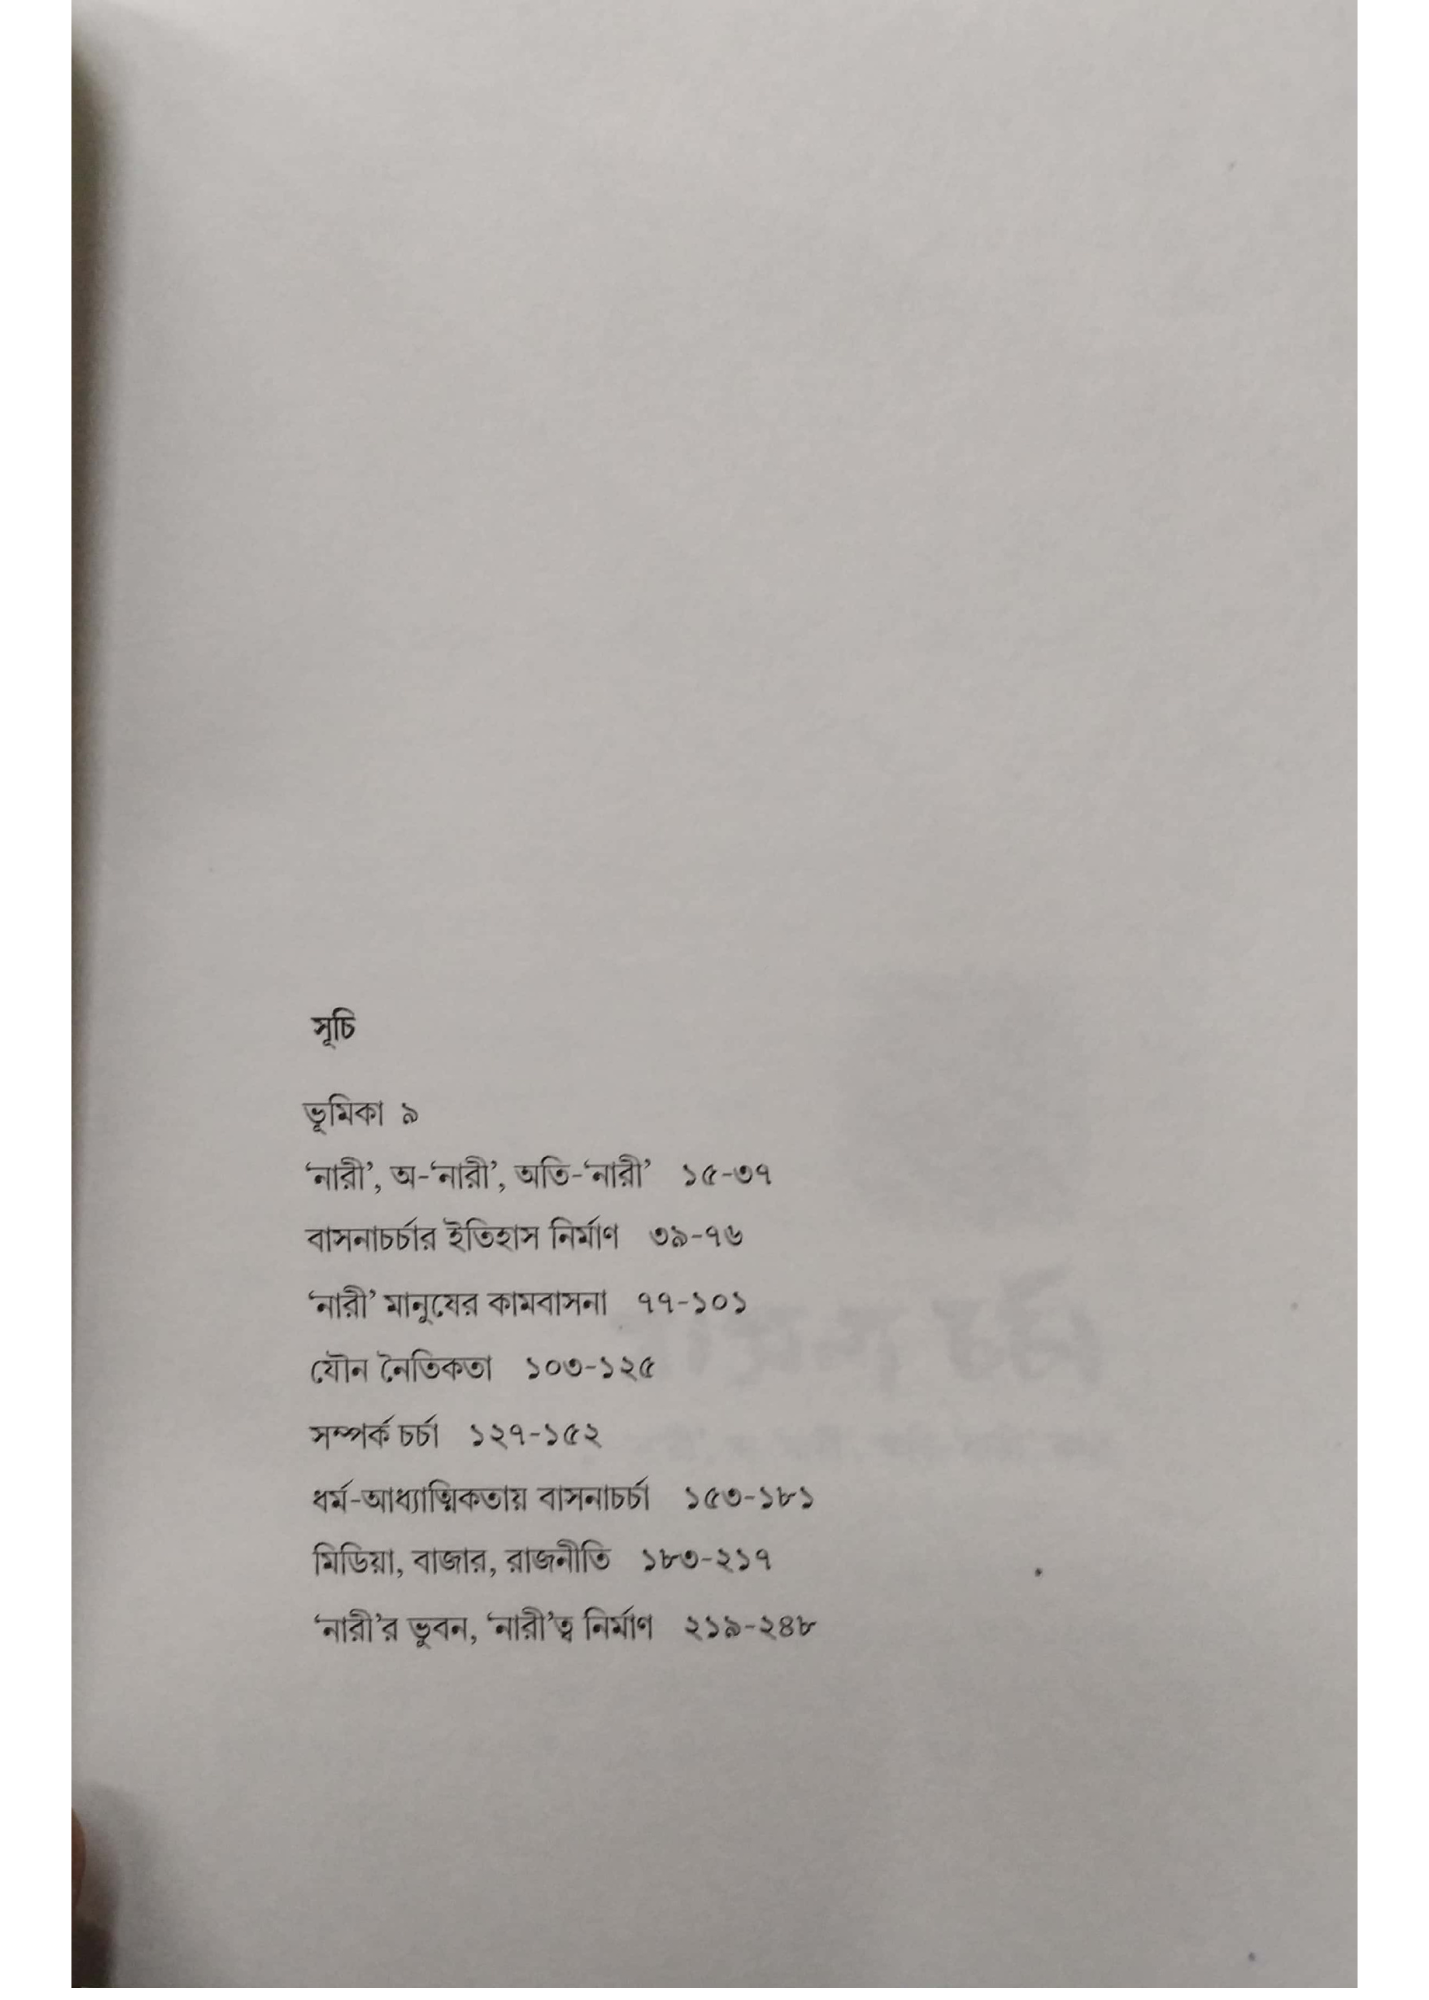 সূচি
ভূমিকা ৯
‘নারী’, অ-‘নারী’, অতি-‘নারী’ ১৫-৩৭
বাসনাচর্চার ইতিহাস নির্মাণ ৩৯-৭৬
‘নারী’ মানুষের কামবাসনা ৭৭-১০১
যৌন নৈতিকতা ১০৩-১২৫
সম্পর্ক চর্চা ১২৭-১৫২
ধর্ম-আধ্যাত্মিকতায় বাসনাচর্চা ১৫৩-১৮১
মিডিয়া, বাজার, রাজনীতি ১৮৩-২১৭
‘নারী’র ভুবন, ‘নারী’ত্ব নির্মাণ ২১৯-২৪৮